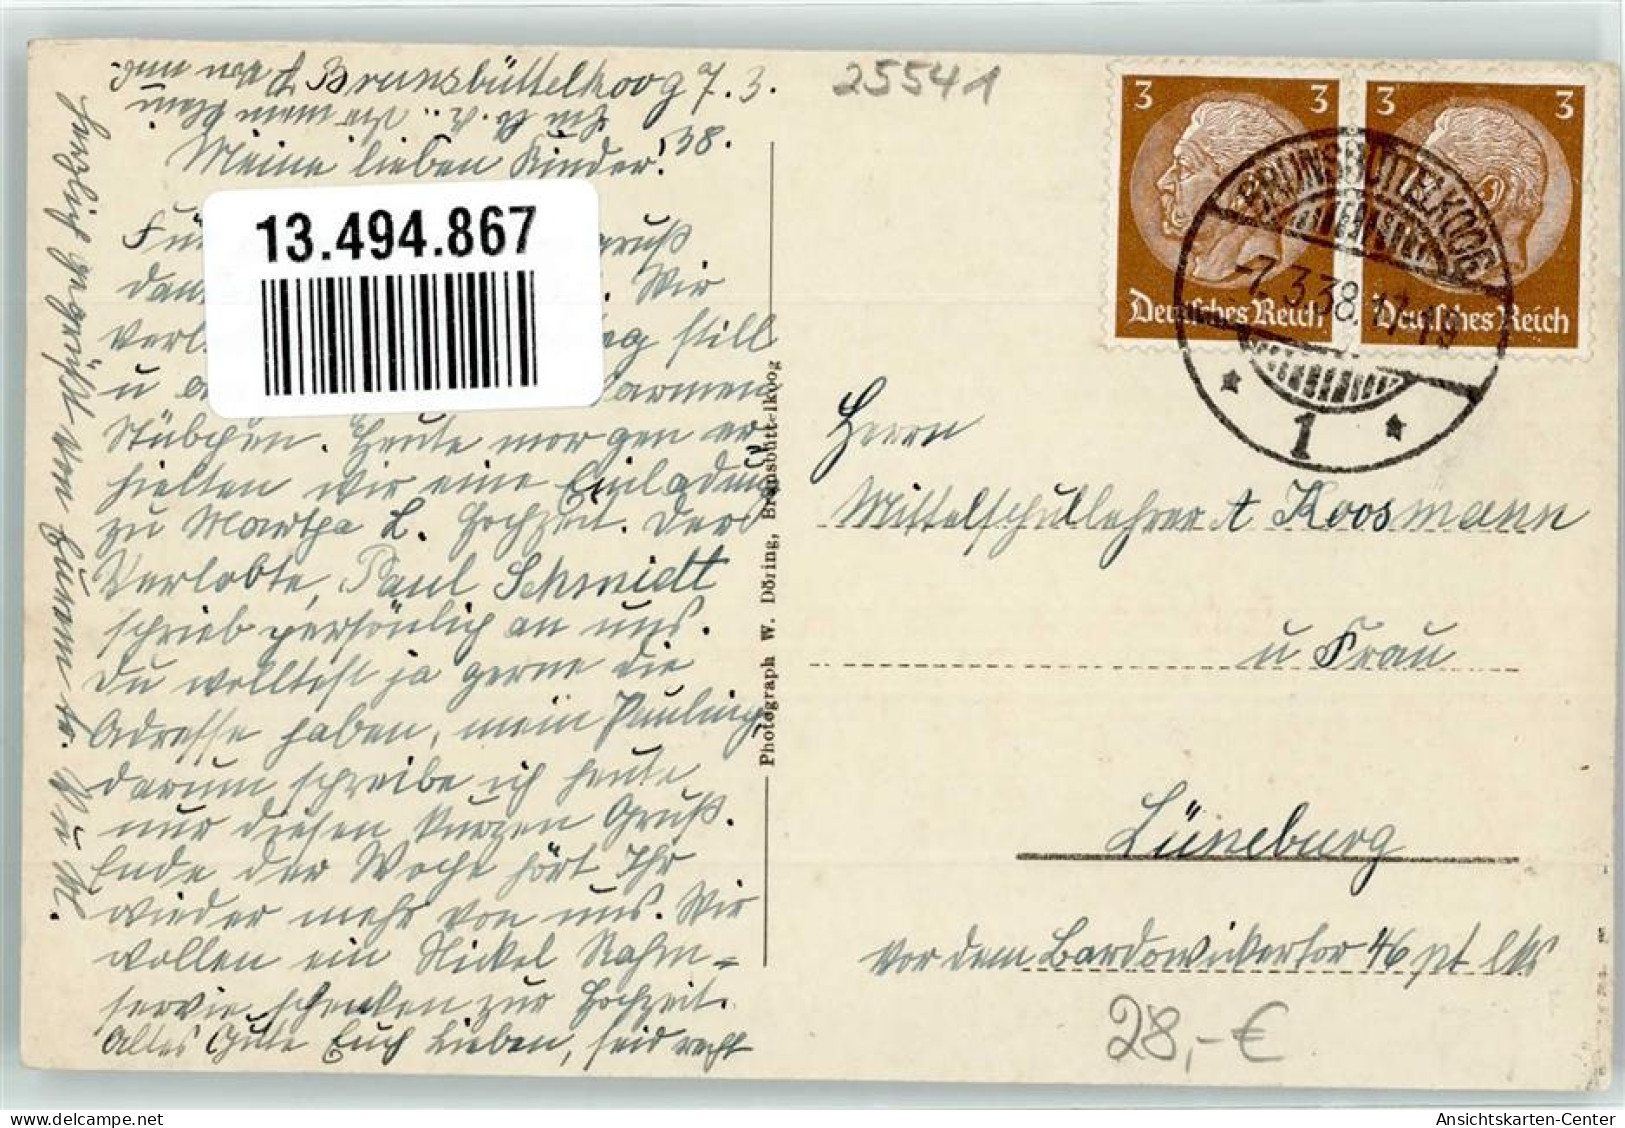 Brunsbüttelkoog 7.3.
38.
Meine lieben Kinder!
Für gruß
dan Wir
verl still
u armen
Stübchen. Heute morgen er
hielten wir eine Einladung
zu Martha L. Hochzeit. Der
Verlobte, Paul Schmidt
schrieb persönlich an uns.
Du wolltest ja gerne die
Adresse haben, mein Pauling,
darum schreibe ich heute
nur diesen kurzen Gruß.
Ende der Woche hört Ihr
wieder mehr von uns. Wir
wollen ein Nickel Rahm=
servie schenken zur Hochzeit.
Alles Gute Euch Lieben, seid recht
herzlich gegrüßt von Eurem
13.494.867
Photograph W. Döring, Brunsbüttelkoog
25541
3 3
Deutsches Reich
3 3
Deutsches Reich
BRUNSBÜTTELKOOG
-7.3.38.17-18
1
Herrn
Mittelschullehrer A Koosmann
u Frau
Lüneburg
vor dem Bardowickertor 46 pt lks
28,-€
Ansichtskarten-Center